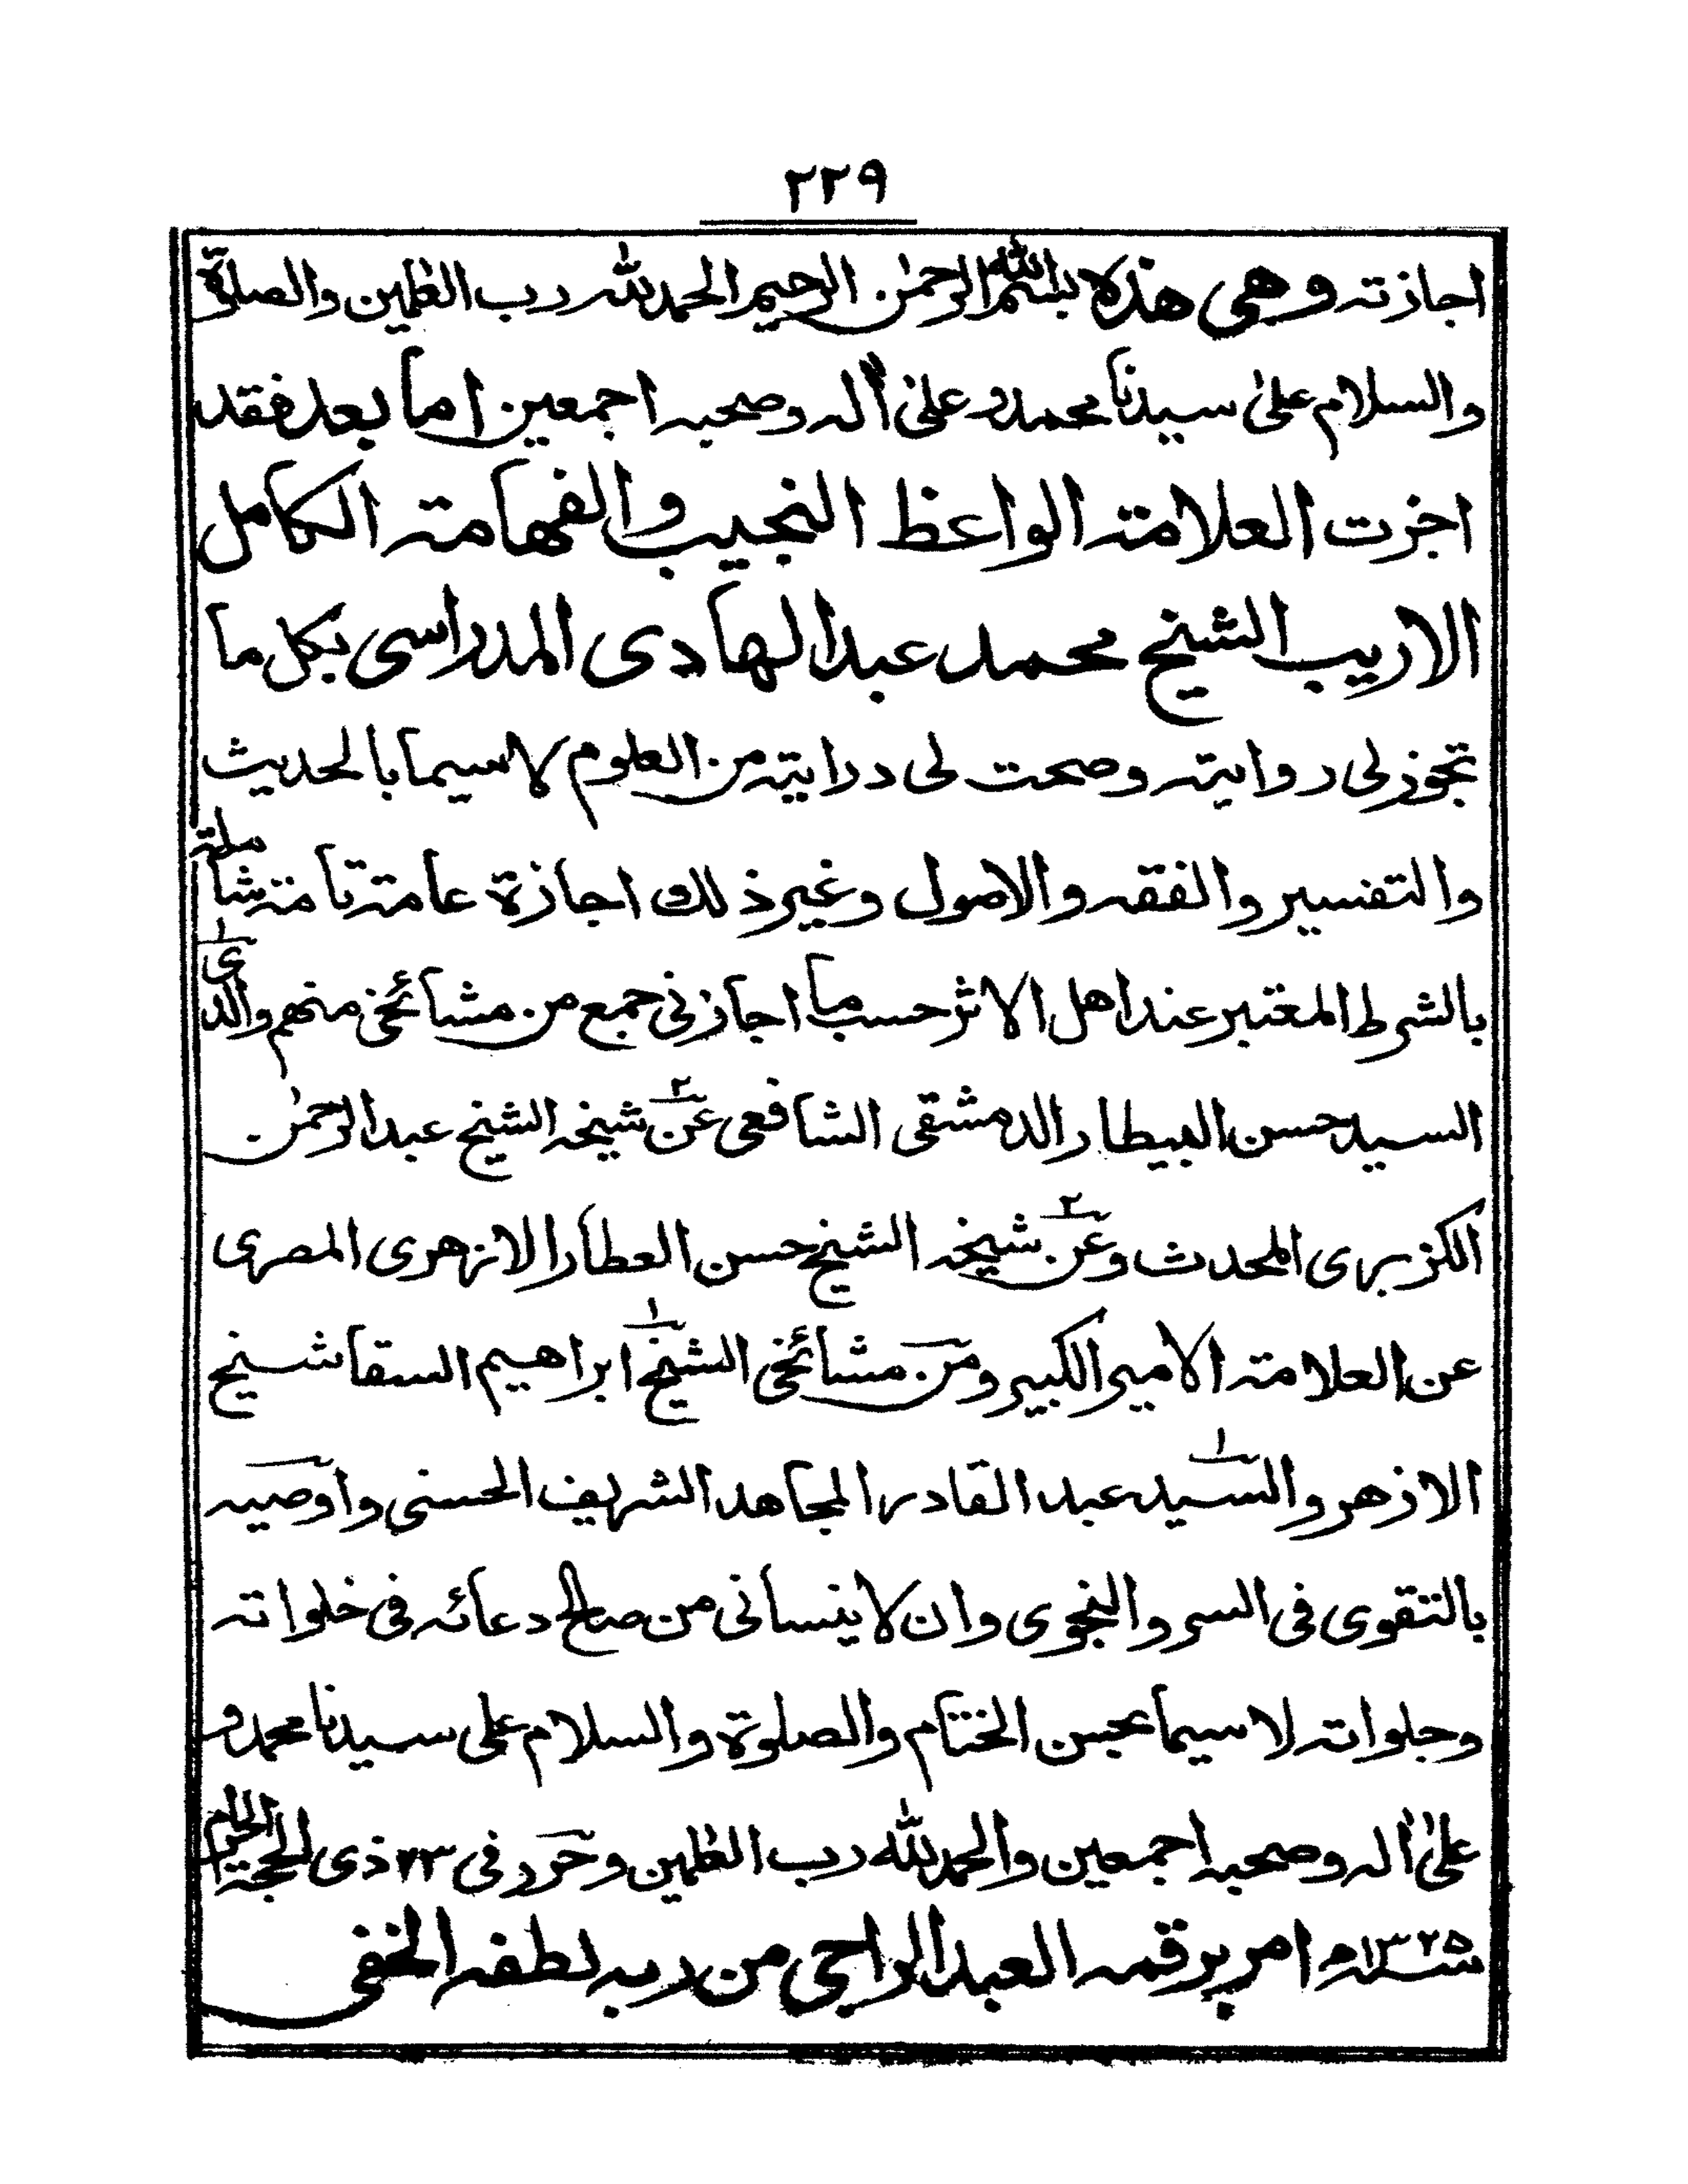 ٢٢٩
اجازته وهي هذه بسم الله الرحمٰن الرحيم الحمد لله رب العٰلمين والصلوة
والسلام علىٰ سيدنا محمد و علىٰ اٰله وصحبه اجمعين اما بعد فقد
اجزت العلامة الواعظ النجيب والفهامة الكامل
الاريب الشيخ محمد عبد الهادى المدراسى بكل ما
تجوز لى روايته وصحت لى درايته من العلوم لاسيما بالحديث
والتفسير والفقه والاصول وغير ذلك اجازة عامة تامة شاملة
بالشرط المعتبر عند اهل الاثر حسب ما اجازنى جمع من مشائخى منهم والدى
السيد حسن البيطار الدمشقى الشافعى عن شيخه الشيخ عبد الرحمٰن
الكزبرى المحدث وعن شيخه الشيخ حسن العطار الازهرى المصرى
عن العلامة الامير الكبير ومن مشائخى الشيخ ابراهيم السقا شيخ
الازهر والسيد عبد القادر المجاهد الشريف الحسنى واوصيه
بالتقوى فى السر والنجوى وان لا ينسانى من صالح دعائه فى خلواته
وجلواته لاسيما بحسن الختام والصلوة والسلام على سيدنا محمد و
علىٰ اٰله وصحبه اجمعين والحمد لله رب العٰلمين وحرر فى ٢٣ ذى الحجة الحرام
سنة ١٣٢٥ه امر برقمه العبد الراجى من ربه لطفه الخفى